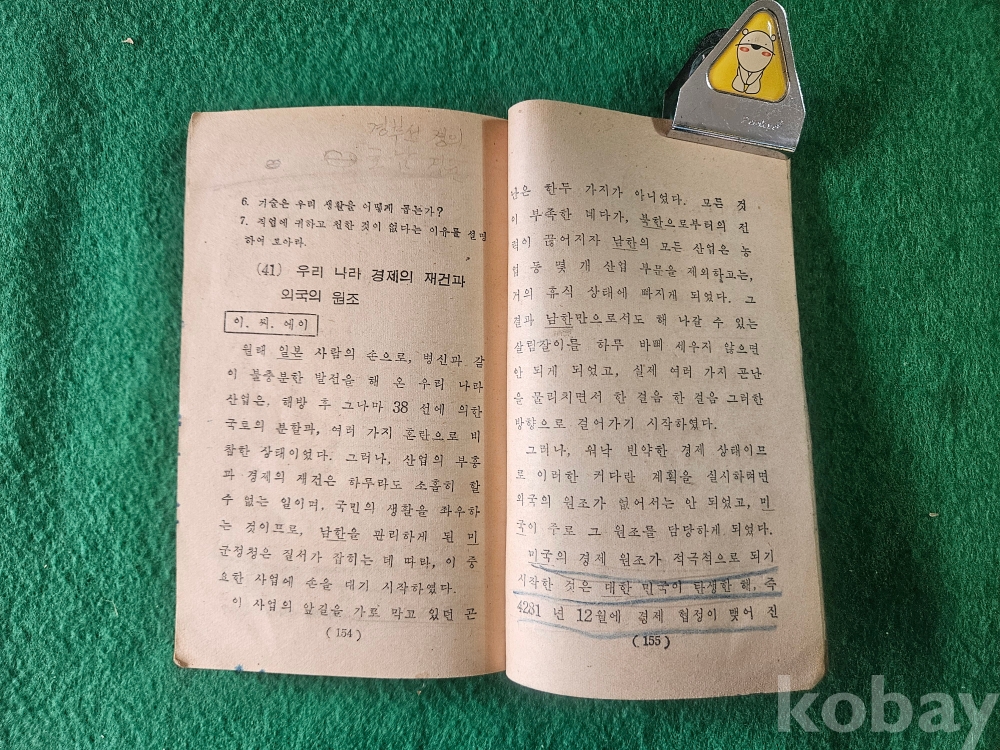 경부선
6. 기술은 우리 생활을 어떻게 돕는가?
7. 직업에 귀하고 천한 것이 없다는 이유를 설명
하여 보아라.
(41) 우리 나라 경제의 재건과
외국의 원조
이. 씨. 에이
원래 일본 사람의 손으로, 병신과 같
이 불충분한 발전을 해 온 우리 나라
산업은, 해방 후 그나마 38 선에 의한
국토의 분할과, 여러 가지 혼란으로 비
참한 상태이었다. 그러나, 산업의 부흥
과 경제의 재건은 하루라도 소홀히 할
수 없는 일이며, 국민의 생활을 좌우하
는 것이므로, 남한을 관리하게 된 미
군정청은 질서가 잡히는 데 따라, 이 중
요한 사업에 손을 대기 시작하였다.
이 사업의 앞길을 가로 막고 있던 곤
(154)
난은 한두 가지가 아니었다. 모든 것
이 부족한 데다가, 북한으로부터의 전
력이 끊어지자 남한의 모든 산업은 농
업 등 몇 개 산업 부문을 제외하고는,
거의 휴식 상태에 빠지게 되었다. 그
결과 남한만으로서도 해 나갈 수 있는
살림살이를 하루 바삐 세우지 않으면
안 되게 되었고, 실제 여러 가지 곤난
을 물리치면서 한 걸음 한 걸음 그러한
방향으로 걸어가기 시작하였다.
그러나, 워낙 빈약한 경제 상태이므
로 이러한 커다란 계획을 실시하려면
외국의 원조가 없어서는 안 되었고, 미
국이 주로 그 원조를 담당하게 되었다.
미국의 경제 원조가 적극적으로 되기
시작한 것은 대한 민국이 탄생한 해, 즉
4281 년 12월에 경제 협정이 맺어 진
(155)
kobay